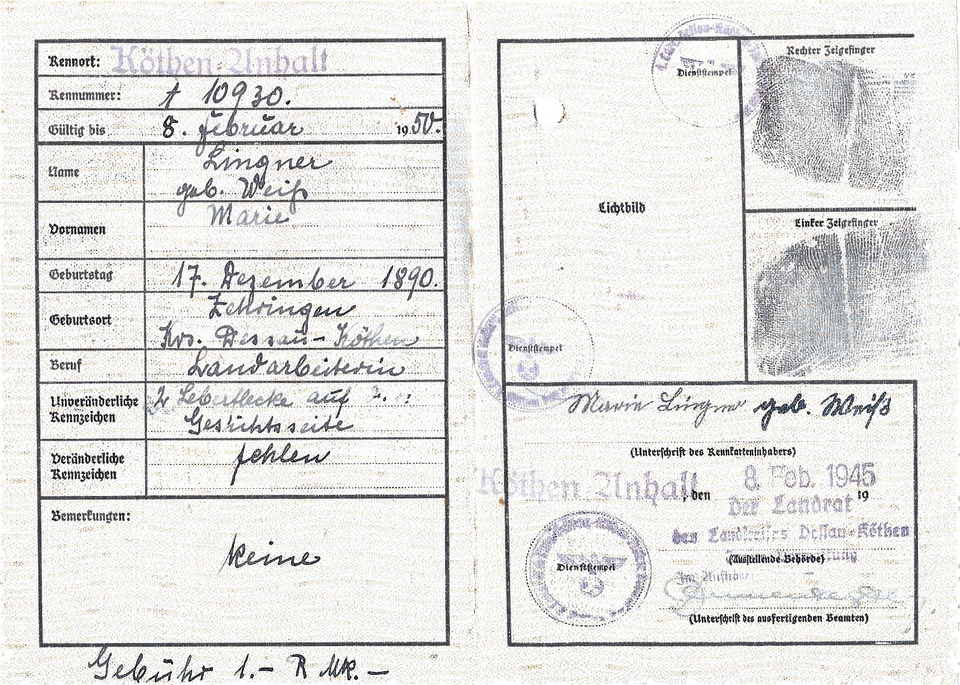 Kennort: Köthen-Anhalt
Kennummer: A 10930.
Gültig bis 8. Februar 1950.
Name Lingner
geb. Weiß
Vornamen Marie
Geburtstag 17. Dezember 1890.
Geburtsort Zehringen
Krs. Dessau-Köthen
Beruf Landarbeiterin
Unveränderliche Kennzeichen 2 Leberflecke auf
Gesichtsseite
Veränderliche Kennzeichen fehlen
Bemerkungen:
keine
Gebühr 1.- R Mk.-
Dienststempel
Rechter Zeigefinger
Lichtbild
Linker Zeigefinger
Dienststempel
Marie Lingner geb. Weiß
(Unterschrift des Kennkarteninhabers)
Köthen-Anhalt, den 8. Feb. 1945 19
Der Landrat
des Landkreises Dessau-Köthen
(Ausstellende Behörde)
Dienststempel
Im Auftrage
(Unterschrift des ausfertigenden Beamten)